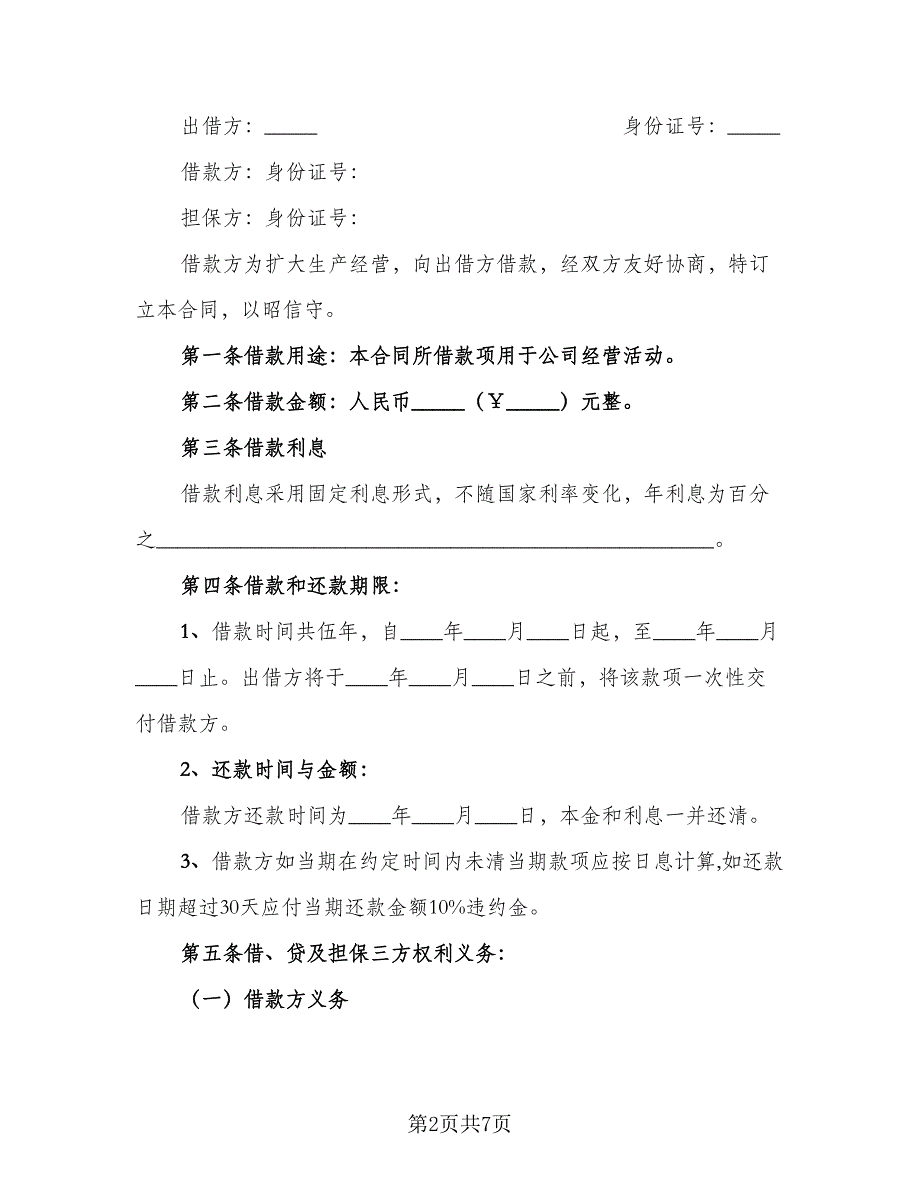 出借方：_____ 身份证号：_____
借款方：身份证号：
担保方：身份证号：
借款方为扩大生产经营，向出借方借款，经双方友好协商，特订
立本合同，以昭信守。
第一条借款用途：本合同所借款项用于公司经营活动。
第二条借款金额：人民币_____（￥_____）元整。
第三条借款利息
借款利息采用固定利息形式，不随国家利率变化，年利息为百分
之_____________________________________________________。
第四条借款和还款期限：
1、借款时间共伍年，自____年____月____日起，至____年____月
____日止。出借方将于____年____月____日之前，将该款项一次性交
付借款方。
2、还款时间与金额：
借款方还款时间为____年____月____日，本金和利息一并还清。
3、借款方如当期在约定时间内未清当期款项应按日息计算,如还款
日期超过30天应付当期还款金额10%违约金。
第五条借、贷及担保三方权利义务：
（一）借款方义务
第2页共7页